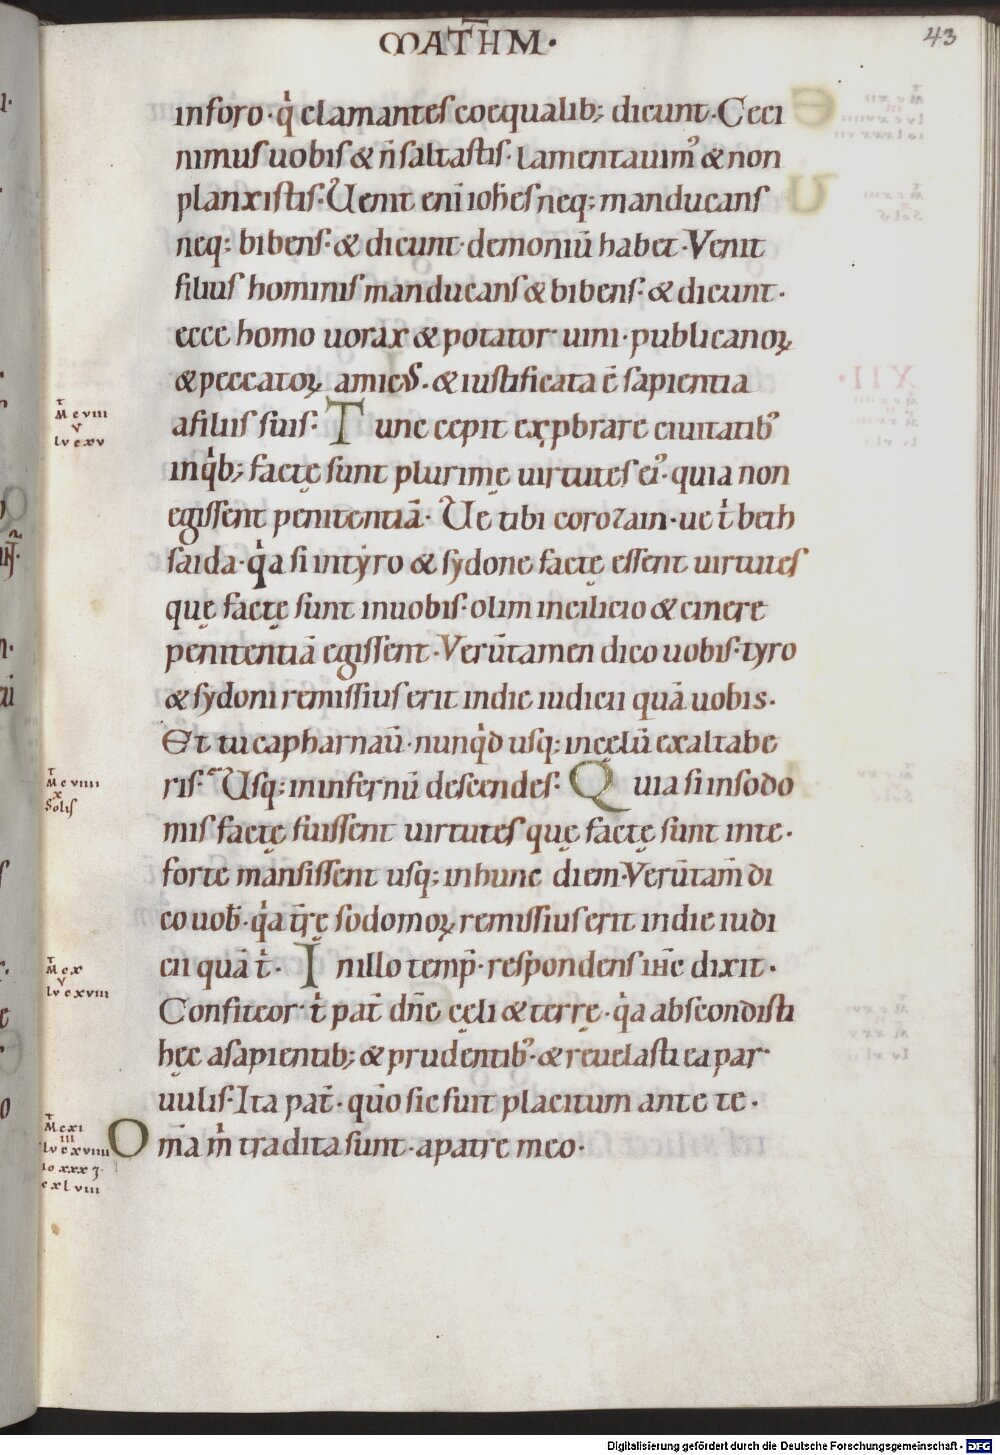 MATHM·
43
inforo·q clamantes coequalib; dicunt·Ceci
nimus uobis & n̄ saltastis·lamentauim᾽ & non
planxistis·Uenit eni̅ ioh̅es neq; manducans
neq; bibens·& dicunt·demoniu̅ habet·Venit
filius hominis manducans & bibens·& dicunt·
ecce homo uorax & potator uini·publicanoꝝ
& peccatoꝝ amicus·& iustificata e̅ sapientia
afiliis suis·Tunc cepit exꝓbrare ciuitatib᾽
inqͥb; factę sunt plurimę uirtutes ei᾽·quia non
egissent penitentia̅·Ue tibi corozain·ue tͥ beth
saida·qͥa si intyro & sydone factę essent uirtutes
quę factę sunt inuobis·olim incilicio & cinere
penitentia̅ egissent·Veru̅tamen dico uobis·tyro
& sydoni remissius erit indie iudicii qua̅ uobis.
Et tu capharnau̅·nunqͥd usq; incęlu̅ exaltabe
ris·Usq; ininfernu̅ descendes·Quia si insodo
mis factę fuissent uirtutes quę factę sunt inte·
forte mansissent usq; inhunc diem·Veru̅tam̅ di
co uob̅·qͥa tr̅ę sodomoꝝ remissius erit indie iudi
cii qua̅ tͥ·Inillo temp̅·respondens ih̅c dixit·
Confiteor tͥ pat̅ dn̅e cęli & terrę·qͥa abscondisti
hęc asapientib; & prudentib᾽·& reuelasti ea par
uulis·Ita pat̅·quo̅ sic fuit placitum ante te·
Om̅a mͥ tradita sunt·apatre meo·
Mt cviii
v
lv cxv
Mt cviiii
x
Solis
Mt cx
v
lv cxviii
Mt cxi
iii
lv cxviiii
io xxx ȝ
cxlviii
Digitalisierung gefördert durch die Deutsche Forschungsgemeinschaft - DFG